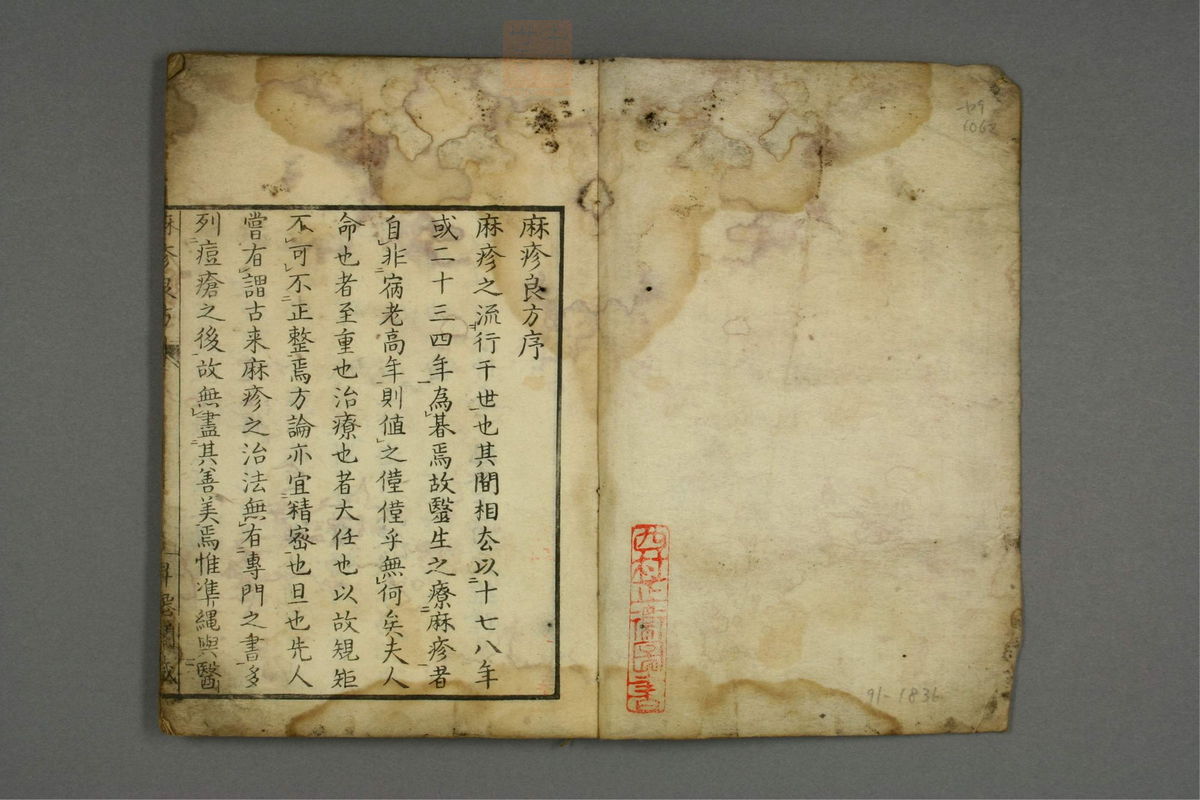 麻疹良方序
麻疹之流行于世也其間相去以十七八年
或二十三四年為朞焉故毉生之療麻疹者
自非病老高年則値之僅僅乎無何矣夫人
命也者至重也治療也者大任也以故規矩
不可不正整焉方論亦宜精密也且也先人
嘗有謂古来麻疹之治法無有專門之書多
列痘瘡之後故無盡其善美焉惟準縄與醫
麻疹良方
49
1062
91-1836